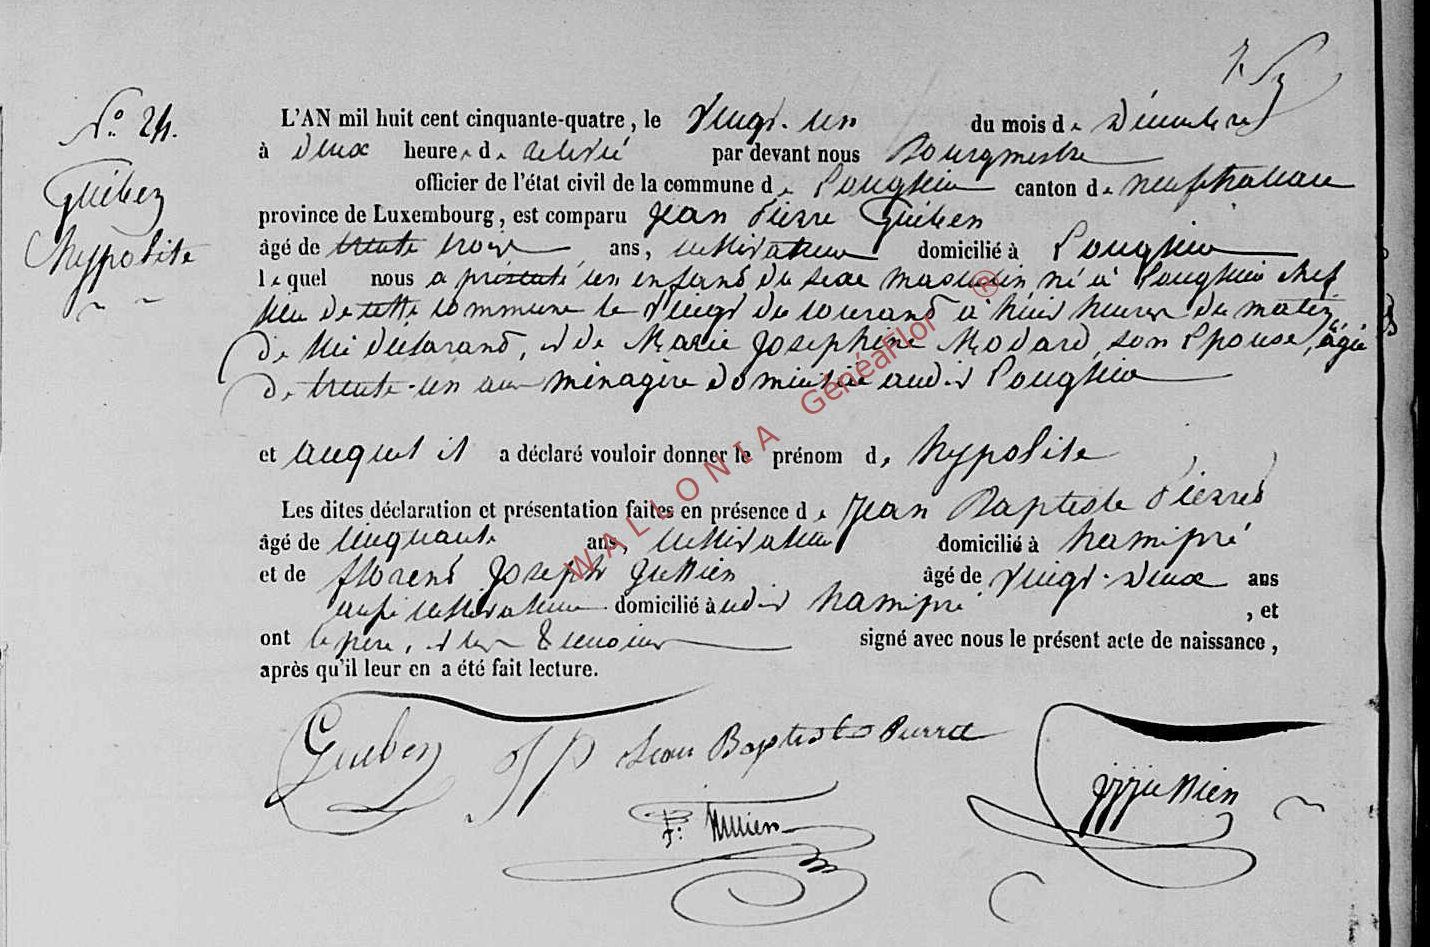 N.º 24.
Guében
hypolite
L'AN mil huit cent cinquante-quatre, le vingt-un du mois de Décembre
à Deux heures de relevée par devant nous Bourgmestre
officier de l'état civil de la commune de Longlier canton de neufchateau
province de Luxembourg, est comparu Jean Pierre Guében
âgé de trente trois ans, cultivateur domicilié à Longlier
lequel nous a présenté un enfant du sexe masculin, né à Longlier chef
lieu de cette commune le vingt du courant à huit heures du matin,
de lui déclarant, et de Marie Josephine Modard, son Epouse, âgée
de trente-un ans ménagère domiciliée audit Longlier
et auquel il a déclaré vouloir donner le prénom d, hypolite
Les dites déclaration et présentation faites en présence de Jean Baptiste Pierret
âgé de cinquante ans, cultivateur domicilié à hamipré
et de florent Joseph Jullien âgé de vingt-deux ans
aussi cultivateur domicilié à udit hamipré, et
ont le père, et les témoins signé avec nous le présent acte de naissance,
après qu'il leur en a été fait lecture.
Gueben Jean Baptiste Pierret
Jullien
WALLONIA GénéaFlor ®